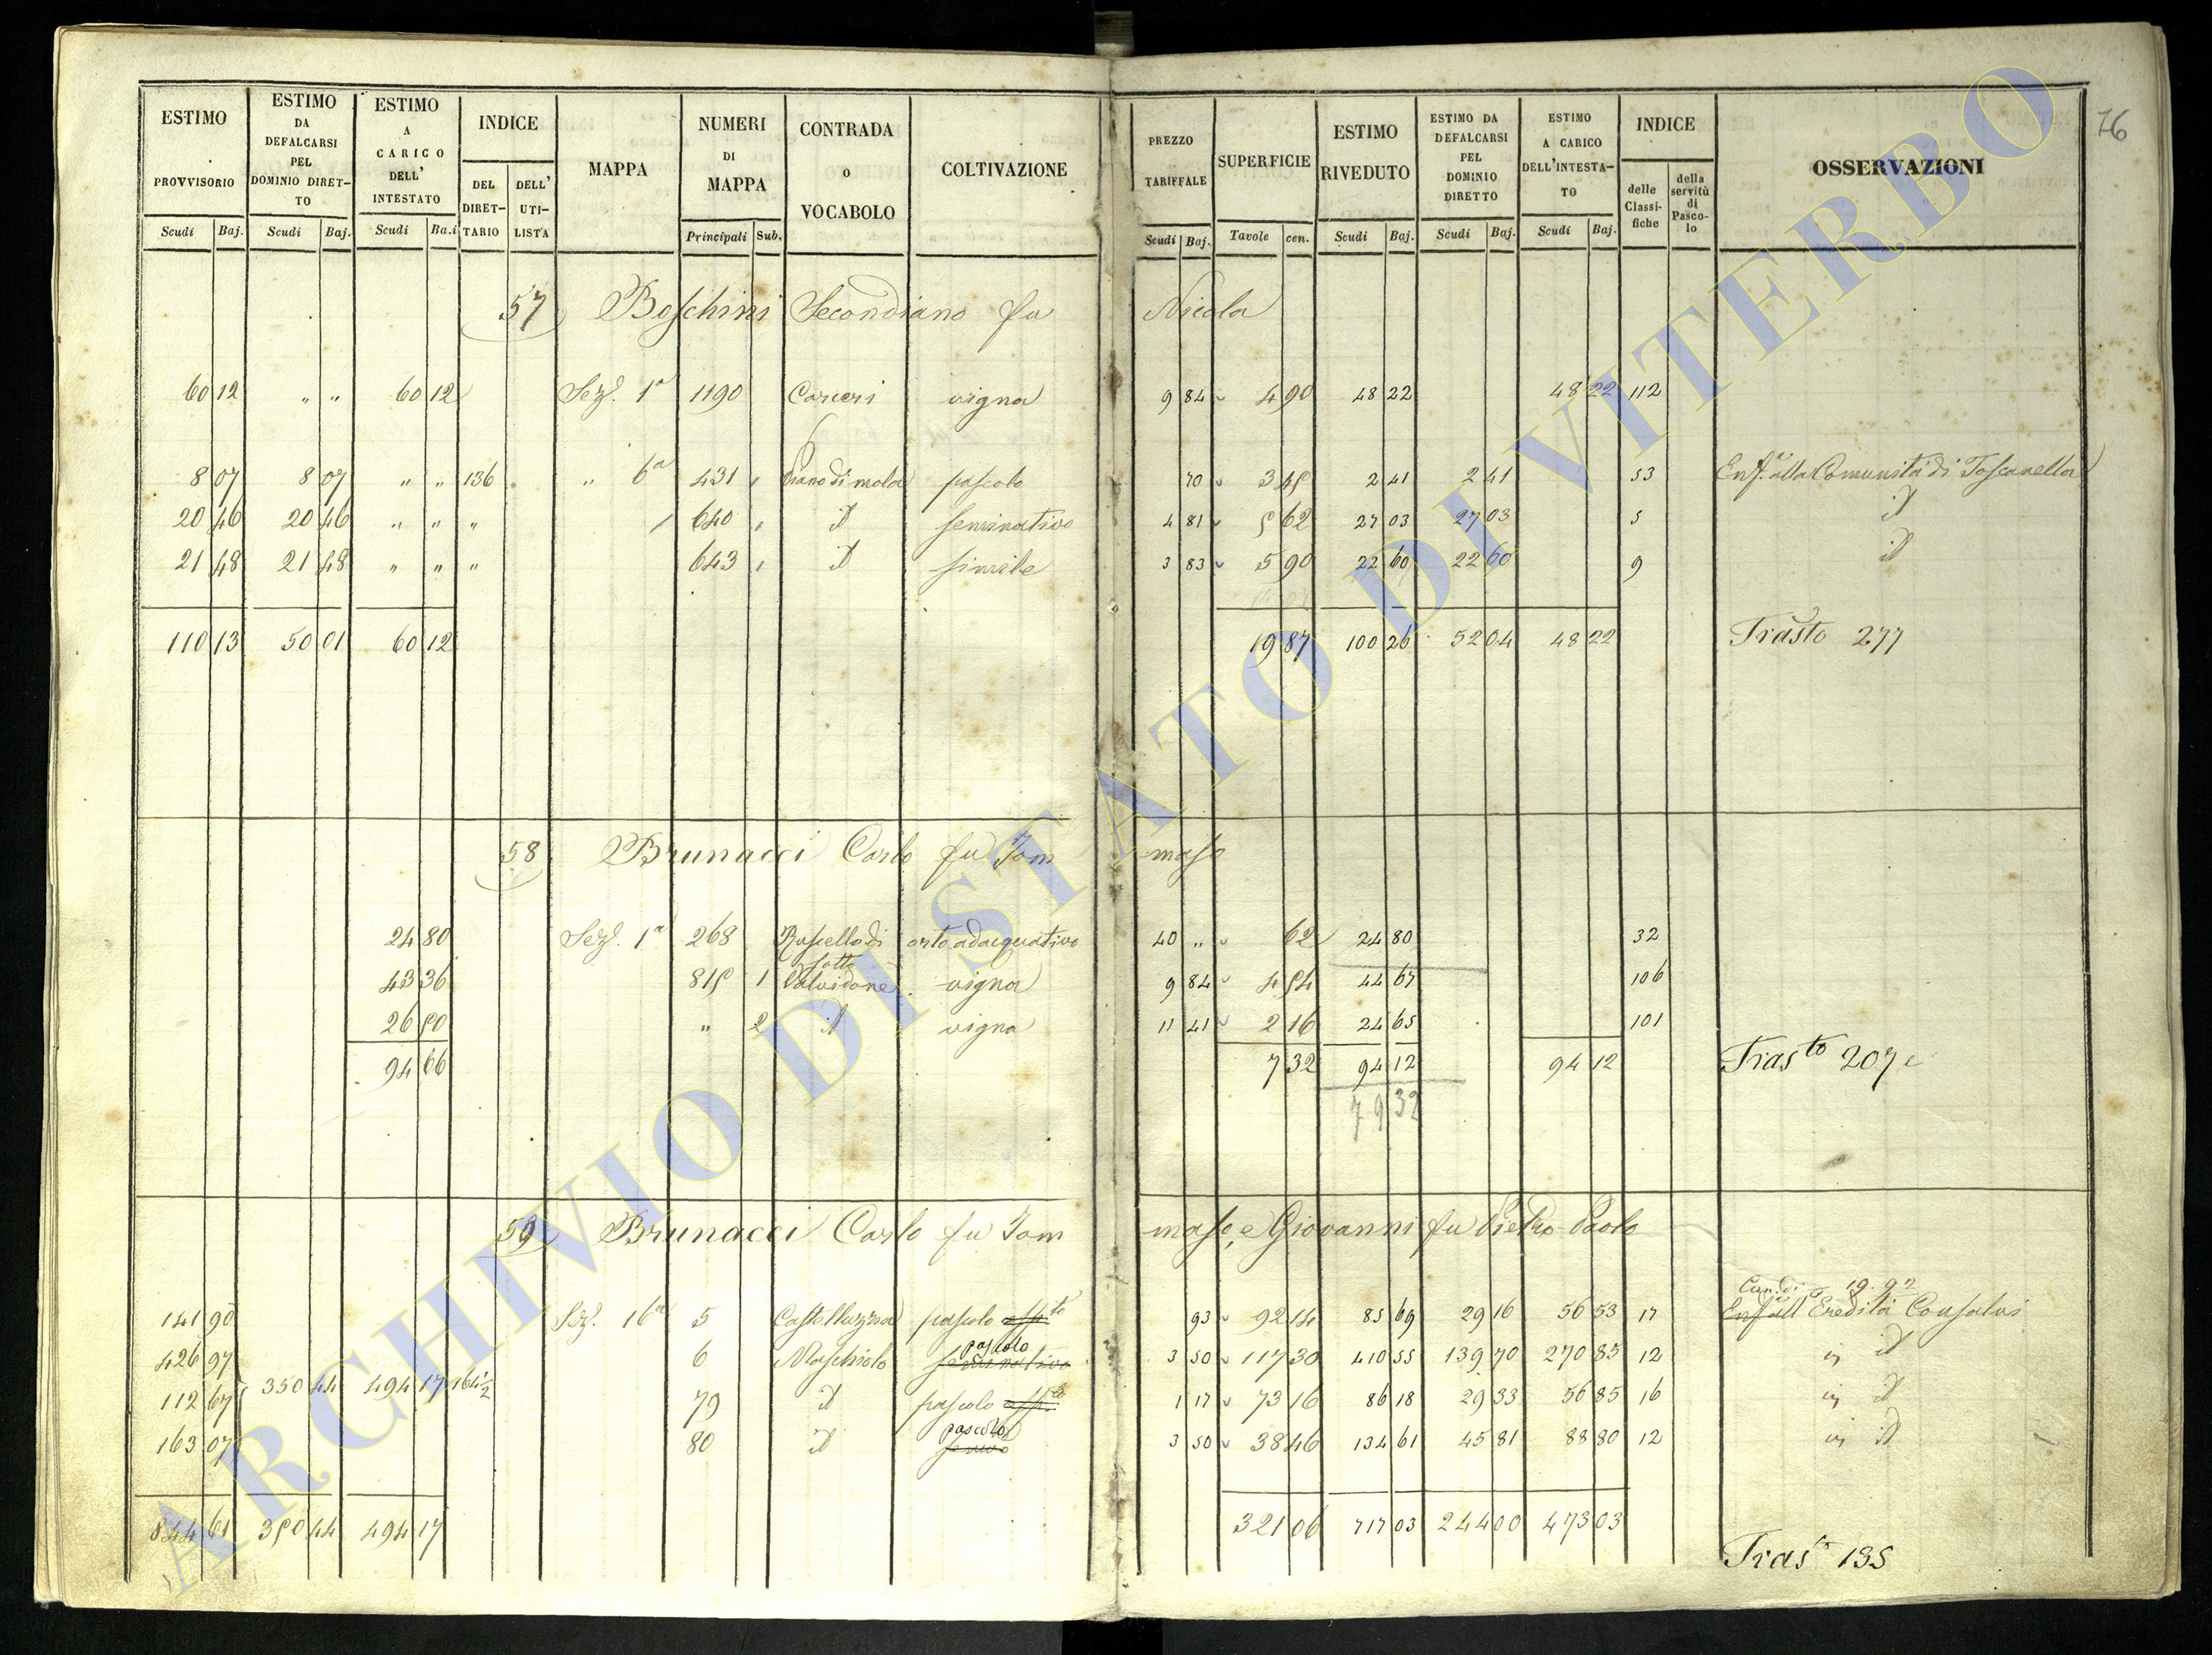 76
ESTIMO PROVVISORIO Scudi Baj.
ESTIMO DA DEFALCARSI PEL DOMINIO DIRET- TO Scudi Baj.
ESTIMO A CARICO DELL' INTESTATO Scudi Ba.i
INDICE DEL DIRET- TARIO DELL' UTI- LISTA
MAPPA
NUMERI DI MAPPA Principali Sub.
CONTRADA o VOCABOLO
COLTIVAZIONE
PREZZO TARIFFALE Scudi Baj.
SUPERFICIE Tavole cen.
ESTIMO RIVEDUTO Scudi Baj.
ESTIMO DA DEFALCARSI PEL DOMINIO DIRETTO Scudi Baj.
ESTIMO A CARICO DELL'INTESTA- TO Scudi Baj.
INDICE delle Classi- fiche della servitù di Pasco- lo
OSSERVAZIONI
57 Boschini Secondiano fu Nicola
60 12 " " 60 12 Sez. 1a 1190 Carceri vigna 9 84 4 90 48 22 48 22 112
8 07 8 07 " " 136 " 6a 431 Piano di mola pascolo 70 3 45 2 41 2 41 53 Enf. alla Comunità di Toscanella
20 46 20 46 " " " 640 id seminativo 4 81 5 62 27 03 27 03 5 id
21 48 21 48 " " " 643 id simile 3 83 5 90 22 60 22 60 9 id
110 13 50 01 60 12 19 87 100 26 52 04 48 22 Trasto 277
58 Brunacci Carlo fu Tom maso
24 80 Sez. 1a 268 Ruscello di sotto orto adacquativo 40 " 62 24 80 32
43 36 815 1 Valvidone vigna 9 84 4 54 44 67 106
26 50 " 2 id vigna 11 41 2 16 24 65 101
94 66 7 32 94 12 94 12 Trasto 207
79 32
59 Brunacci Carlo fu Tom maso, e Giovanni fu Pietro Paolo
Can. di 19.92
141 90 Sez. 16a 5 Castelluzza pascolo 93 92 14 85 69 29 16 56 53 17 Enf. all Eredità Consalvi
426 97 6 Maschiolo pascolo seminativo 3 50 117 30 410 55 139 70 270 85 12 id
350 44 494 17 164 1/2
112 67 79 id pascolo 1 17 73 16 86 18 29 33 56 85 16 id
163 07 80 id pascolo 3 50 38 46 134 61 45 81 88 80 12 id
844 61 350 44 494 17 321 06 717 03 244 00 473 03
Trasto 135
ARCHIVIO DI STATO DI VITERBO